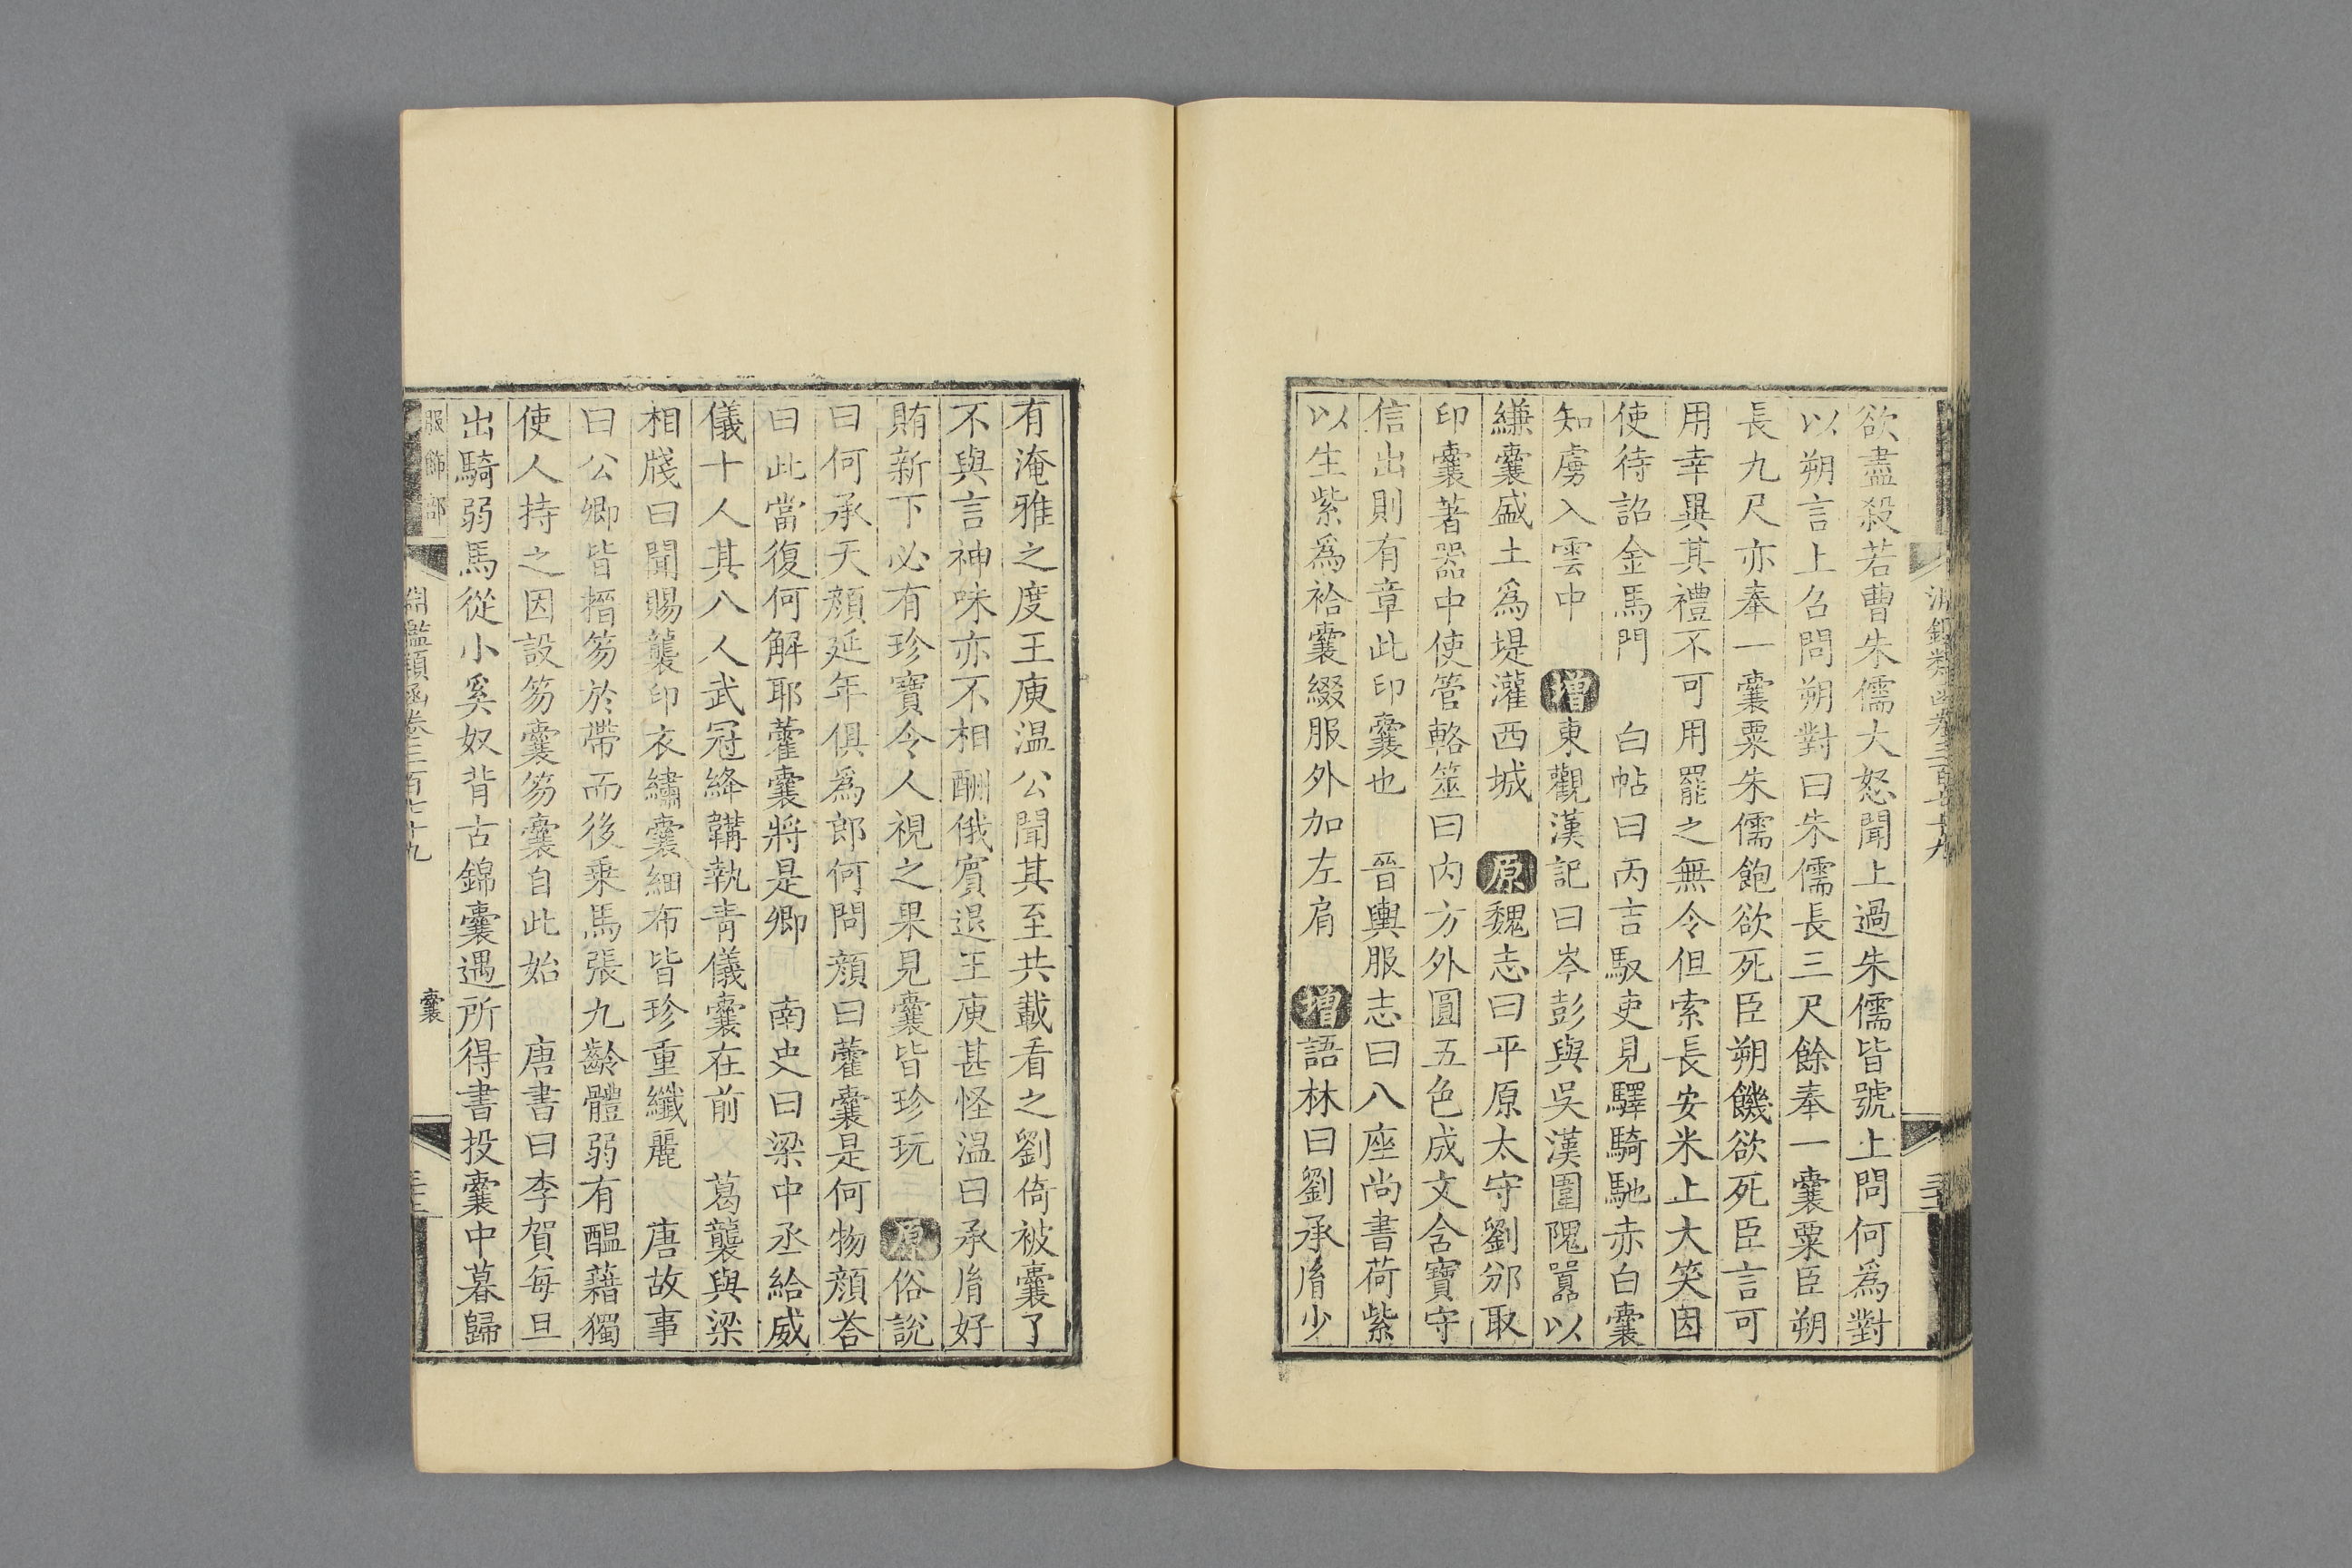 欲盡殺若曹朱儒大怒聞上過朱儒皆號上問何為對
以朔言上召問朔對曰朱儒長三尺餘奉一囊粟臣朔
長九尺亦奉一囊粟朱儒飽欲死臣朔饑欲死臣言可
用幸異其禮不可用罷之無令但索長安米上大笑因
使待詔金馬門　白帖曰丙吉馭吏見驛騎馳赤白囊
知虜入雲中　增東觀漢記曰岑彭與吳漢圍隗囂以
縑囊盛土爲堤灌西城　原魏志曰平原太守劉邠取
印囊著器中使管輅筮曰内方外圓五色成文含寶守
信出則有章此印囊也　晉輿服志曰八座尚書荷紫
以生紫爲袷囊綴服外加左肩　增語林曰劉承胤少
有淹雅之度王庾温公聞其至共載看之劉倚被囊了
不與言神味亦不相酬俄賓退王庾甚怪温曰承胤好
賄新下必有珍寶令人視之果見囊皆珍玩　原俗説
曰何承天顔延年俱爲郎何問顔曰藿囊是何物顔荅
曰此當復何解耶藿囊將是卿　南史曰梁中丞給威
儀十人其八人武冠絳韝執青儀囊在前　葛龔與梁
相牋曰聞賜龔印衣繡囊細布皆珍重纖麗　唐故事
曰公卿皆搢笏於帶而後乗馬張九齡體弱有醖藉獨
使人持之因設笏囊笏囊自此始　唐書曰李賀每旦
出騎弱馬從小奚奴背古錦囊遇所得書投囊中暮歸
服飾部　淵鑑類函卷三百七十九　囊